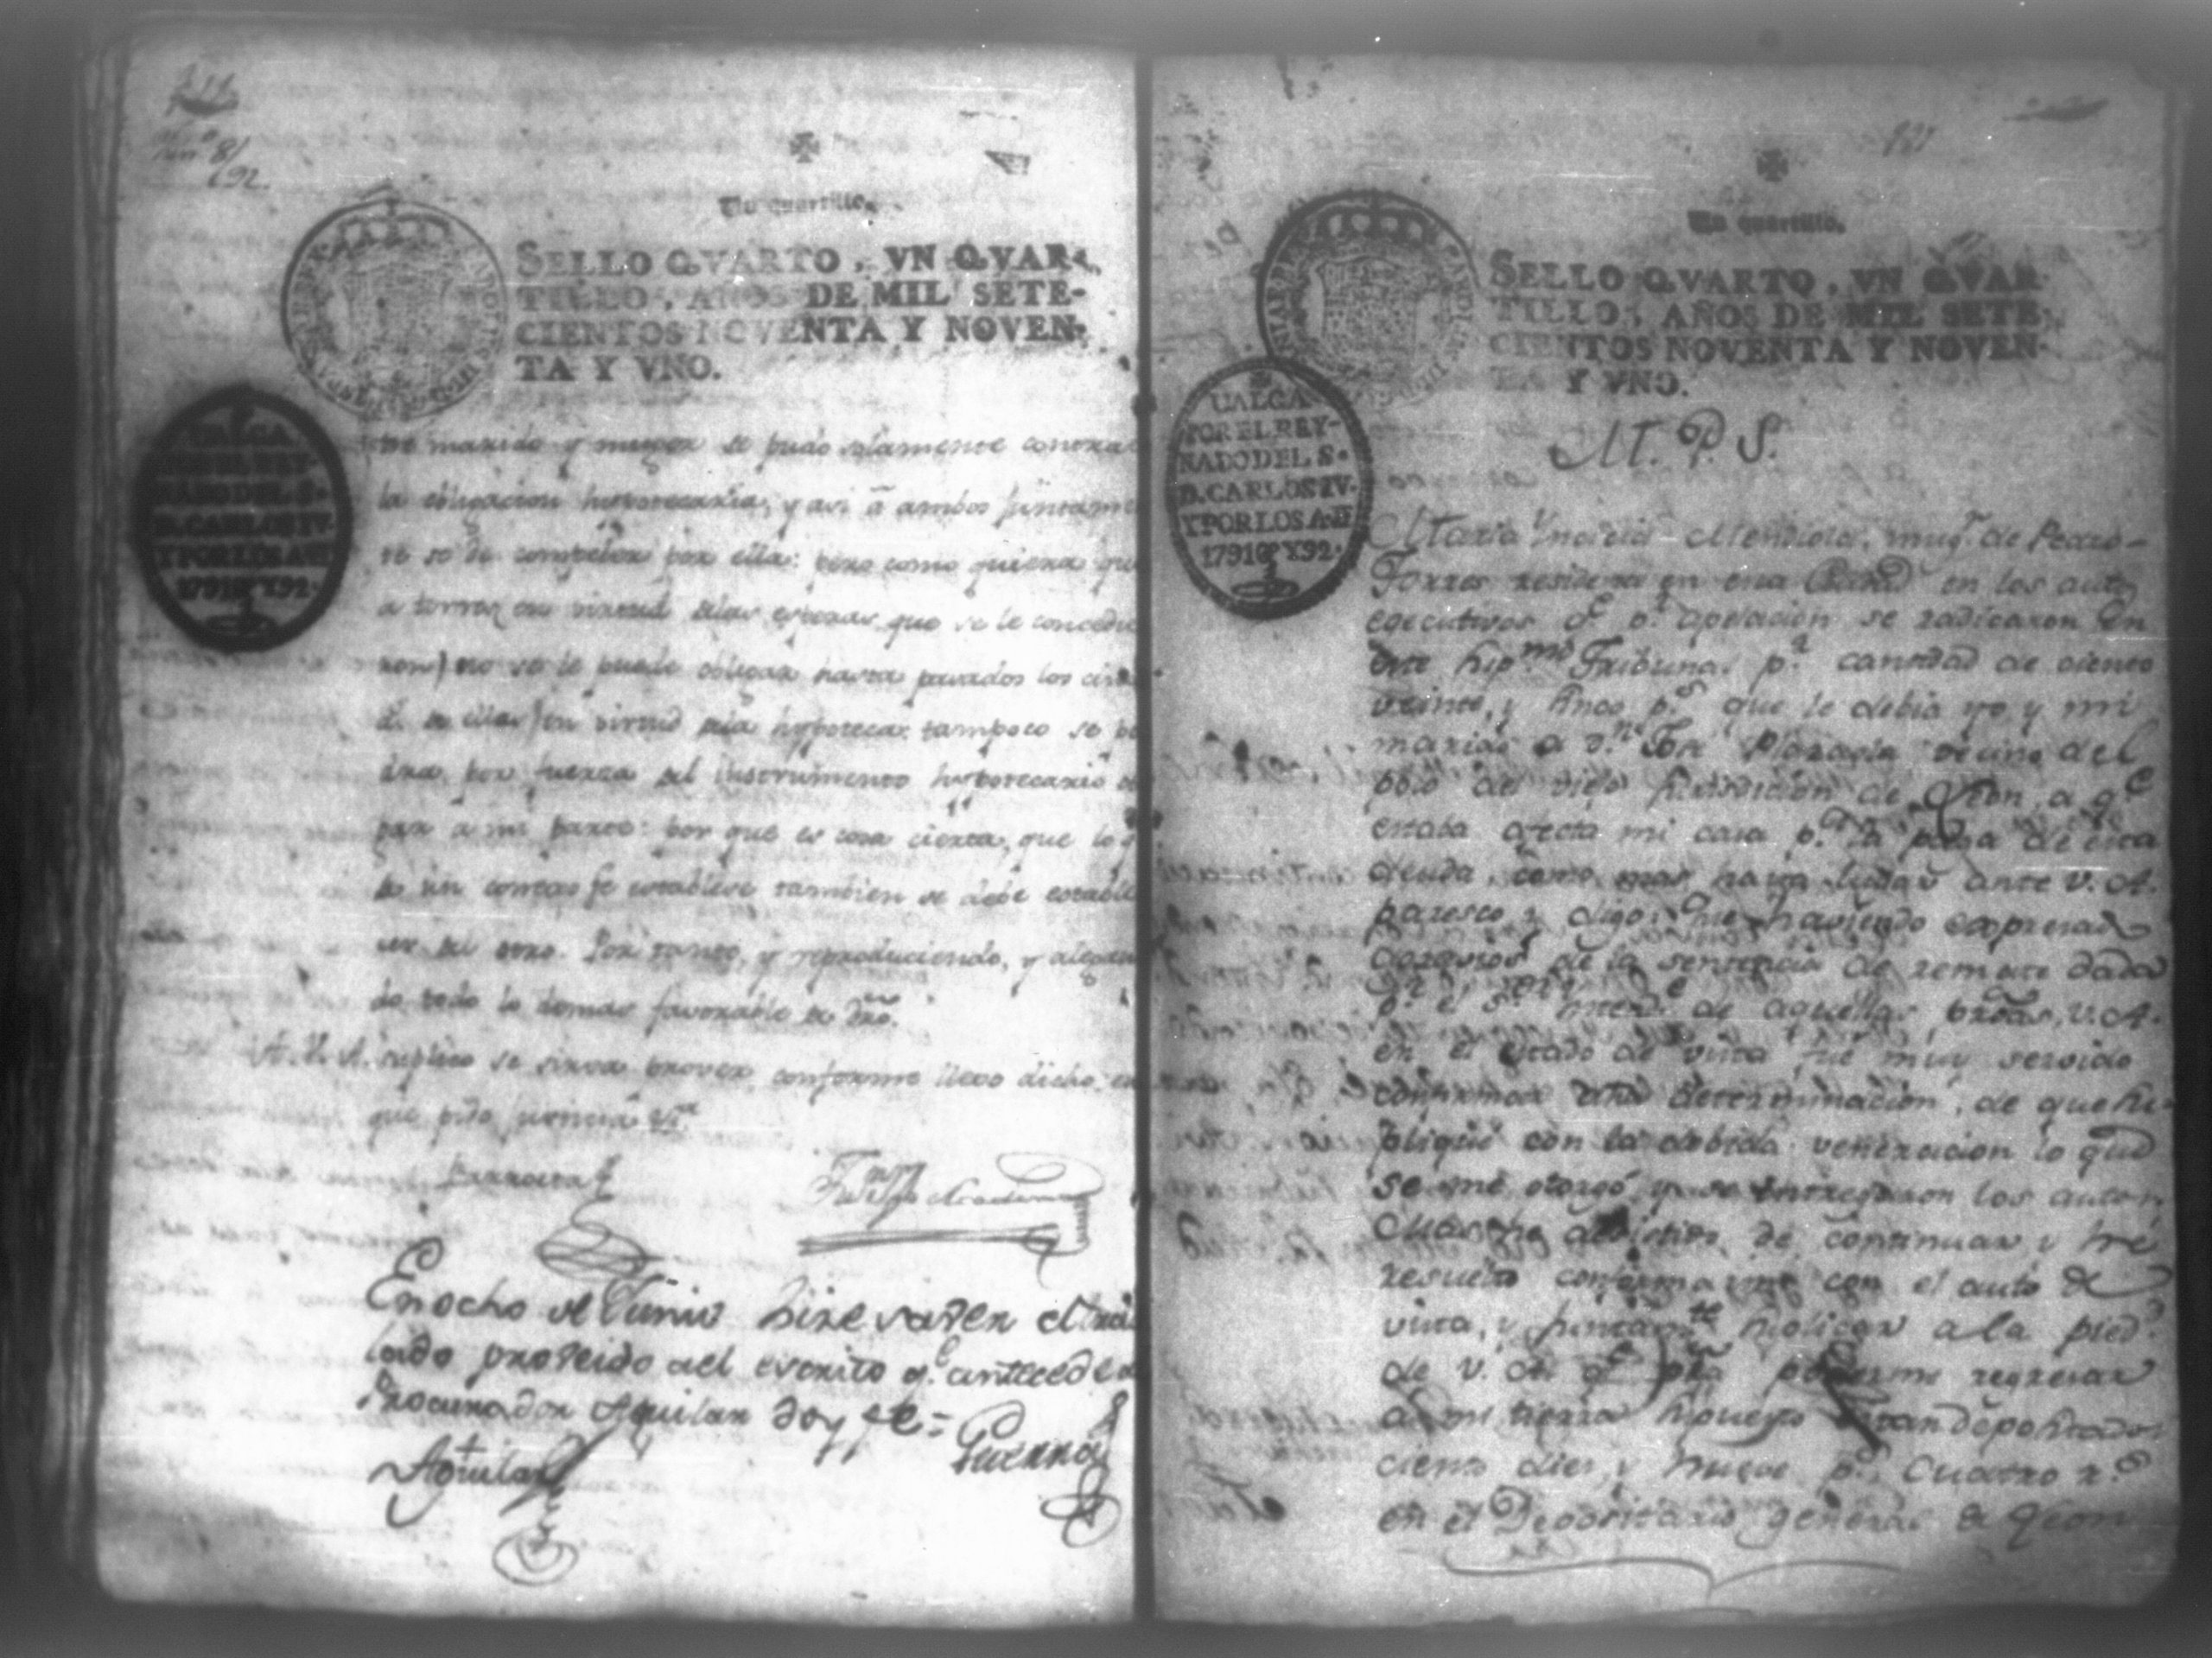 Jun.º 8/
192.
Un quartillo.
SELLO QVARTO, VN QVAR-
TILLO, AÑOS DE MIL SETE-
CIENTOS NOVENTA Y NOVEN-
TA Y VNO.
VALGA
POR EL REY-
NADO DEL S.
D. CARLOS IV.
Y POR LOS A. DE
1791 Y 92.
tre marido y muger se pudo solamente contra
la obligacion hipotecaria, y asi a ambos juntamen
te se de compeler por ella: pero como quiera que
a torres en virtud delas esperas que se le concedie
ron) no se le puede obligar hasta pasados los
de ellas) en virtud dela hypoteca, tampoco se po
dra por fuerza del instrumento hipotecario
par a mi parte: por que es cosa cierta, que lo q
de un correo se establece tambien se debe estable
cer del otro. Por tanto, y reproduciendo, y alegan
do todo lo demas favorable de dro.
A. V. A. suplico se sirva prover conforme llevo dicho, en
que pido justicia
Barrera
En ocho de Junio hize saver el tras
lado proveido del escrito q.e antecede a
Procurador Aguilar doy fe=
Aguilar
Guerra
Un quartillo.
SELLO QVARTO, VN QVAR-
TILLO, AÑOS DE MIL SETE-
CIENTOS NOVENTA Y NOVEN-
TA Y VNO.
VALGA
POR EL REY-
NADO DEL S.
D. CARLOS IV.
Y POR LOS A. DE
1791 Y 92.
M. P. S.
Maria Ynacia Mendiola, mug.r de Pedro
Torres residente en esta Ciudad en los autos
egecutivos q.e p.r apelacion se radicaron en
este sup.mo Tribunal p.r cantidad de ciento
veinte, y sinco p.s que le debia yo y mi
marido a D.n José Plazaola vecino del
poso del viejo jurisdicion de Leon, a q.e
estaba afecta mi casa p.a la paga de esta
deuda, como mas haya lugar ante V. A.
paresco y digo: que haviendo expresado
agravios de la sentencia de remate dada
p.r el S.r Intend.e de aquellas prov.as, V. A.
en el estado de vista fue muy servido
confirmar dha determinacion, de que su-
pliqué con la debida veneracion lo que
se me otorgó, y se entregaron los autos.
resuelto conformarme con el auto de
vista, y juntam.te suplicar a la pied.d
de V. A. q.e p.a poderme regresar
a mi tierra supuesto estan depositados
ciento dies, y nueve p.s cuatro r.s
en el Depositario general de Leon